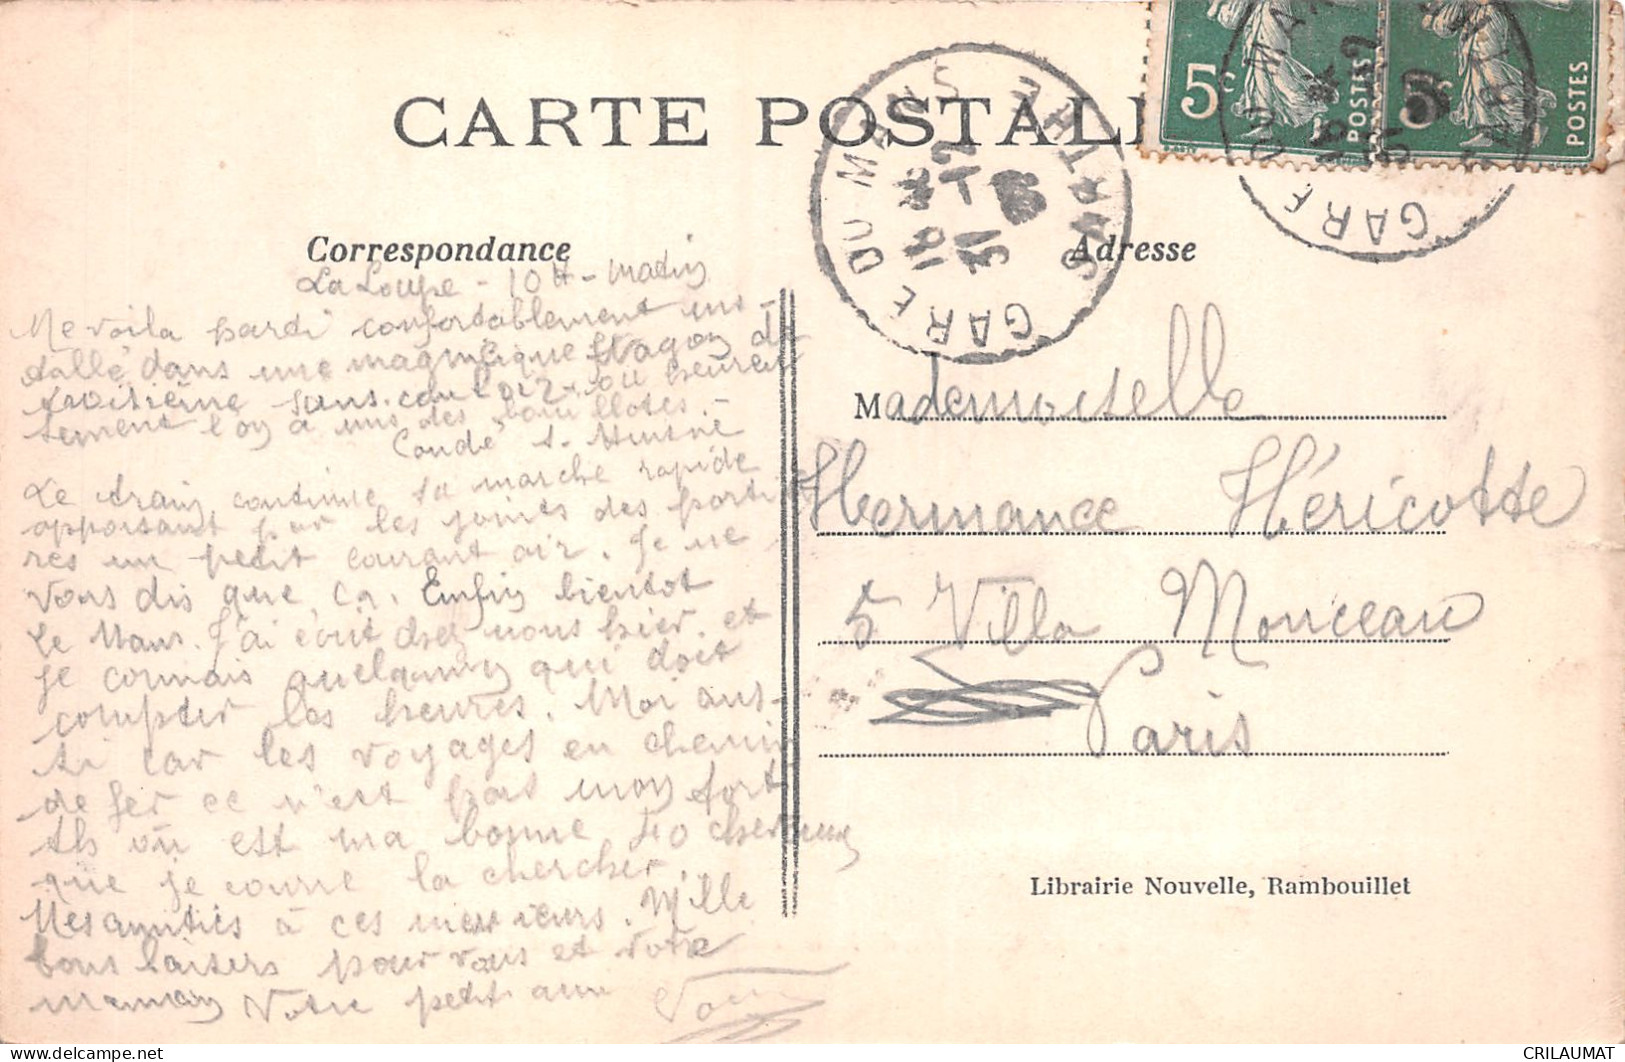 CARTE POSTAL
5c
POSTES
5
POSTES
GARE DU MANS SARTHE
31
GARE DU MAN
Correspondance
Adresse
La Loupe - 10 H - matin
Me voila pardi confortablement ins-
tallé dans une magnifique Wagon de
troisième sans couloir ou heureu
sement l'on a mis des bouillotes. -
Condé s. Huisne
Le train continue sa marche rapide
apportant par les joints des portiè
res un petit courant air. Je ne
vous dis que ça. Enfin bientot
Le Mans. J'ai écrit chez nous hier et
je connais quelqu'un qui doit
compter les heures. Moi aus-
si car les voyages en chemin
de fer ce n'est pas mon fort
Ah où est ma bonne 40 chevaux
que je courre la chercher.
Mes amitiés à ces messieurs. Mille
bons baisers pour vous et votre
maman Votre petit ami
Mademoiselle
Hermance Héricotte
5 Villa Monceau
Paris
Librairie Nouvelle, Rambouillet
CRILAUMAT